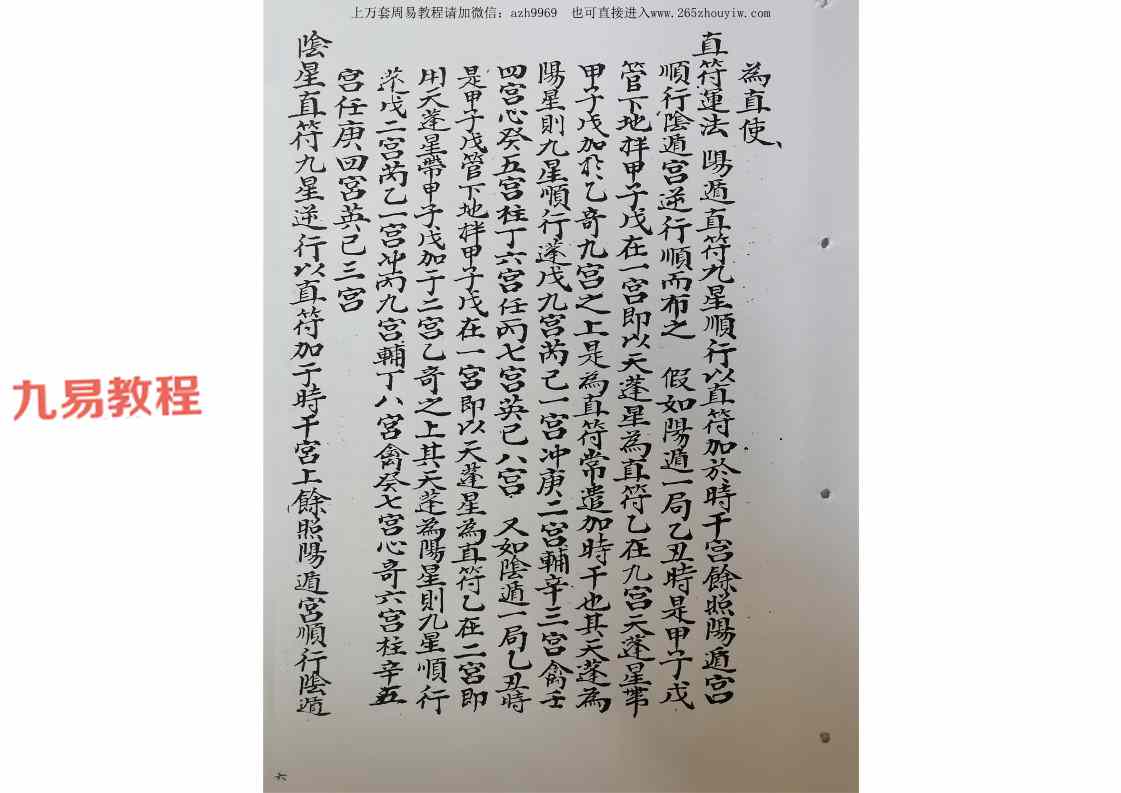 上万套周易教程请加微信：azh9969　也可直接进入www.265zhouyiw.com
為直使、
直符運法　陽遁直符九星順行以直符加於時干宮餘照陽遁宮
順行陰遁宮逆行順而布之　假如陽遁一局乙丑時是甲子戊
管下地拌甲子戊在一宮即以天蓬星為直符乙在九宮天蓬星帶
甲子戊加於乙奇九宮之上是為直符常遣加時干也其天蓬為
陽星則九星順行蓬戊九宮芮己一宮冲庚二宮輔辛三宮禽壬
四宮心癸五宮柱丁六宮任丙七宮英乙八宮　又如陰遁一局乙丑時
是甲子戊管下地拌甲子戊在一宮即以天蓬星為直符乙在二宮即
用天蓬星帶甲子戊加于二宮乙奇之上其天蓬為陽星則九星順行
蓬戊二宮芮乙一宮冲丙九宮輔丁八宮禽癸七宮心奇六宮柱辛五
宮任庚四宮英己三宮
陰星直符九星逆行以直符加于時干宮上餘照陽遁宮順行陰遁
九易教程
六